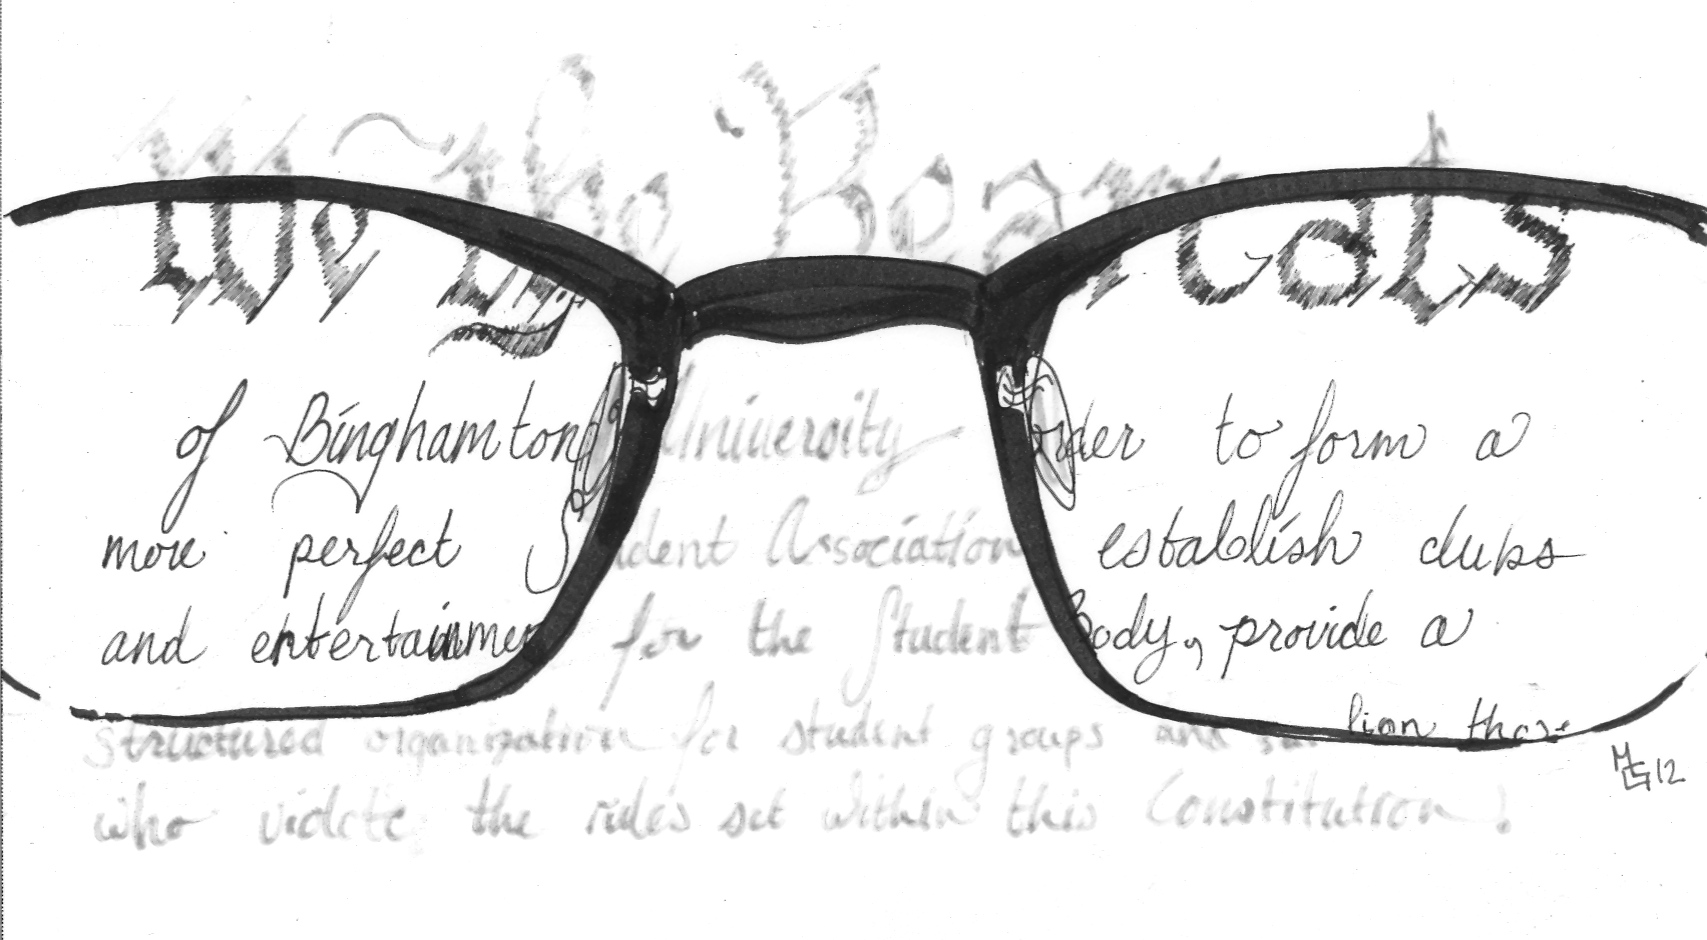 We the Bearcats
of Binghamton University order to form a
more perfect Student Association establish clubs
and entertainment for the Student Body, provide a
structured organization for student groups and lion those
who violate the rules set within this Constitution.
MG12